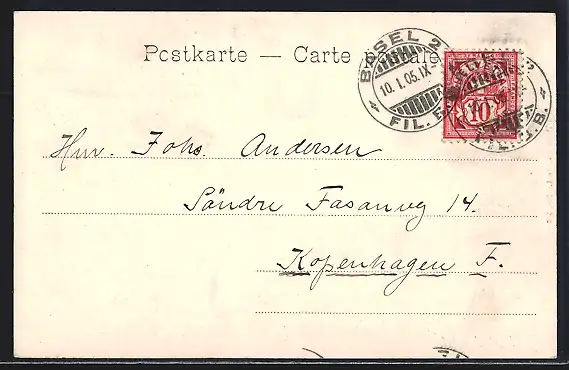 Postkarte — Carte postale
BASEL 2
10. I. 05. IX-
FIL.
10
Hrn. Johs. Andersen
Söndre Fasanvej 14.
Kopenhagen F.